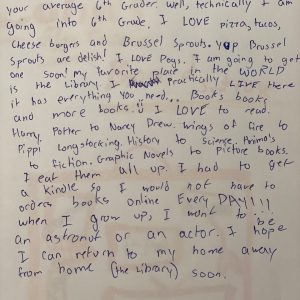 your average 6th Grader. well, technically I am
going into 6th Grade. I LOVE pizza, tacos,
Cheese burgers and Brussel Sprouts. Yup Brussel
Sprouts are delish! I LOVE Dogs. I am going to get
one soon! my favorite place in the WORLD
is the Library. I practically LIVE there
it has everything you need... Books books,
and more books. I LOVE to read.
Harry Potter to Nancy Drew. wings of fire to
Pippi Longstocking. History to science. Animals
to fiction. Graphic Novels to Picture books.
I eat them all up. I had to get
a kindle so I would not have to
order books online Every DAY!!!
when I grow up, I want to be
an astronut or an actor. I hope
I can return to my home away
from home (the Library) soon.